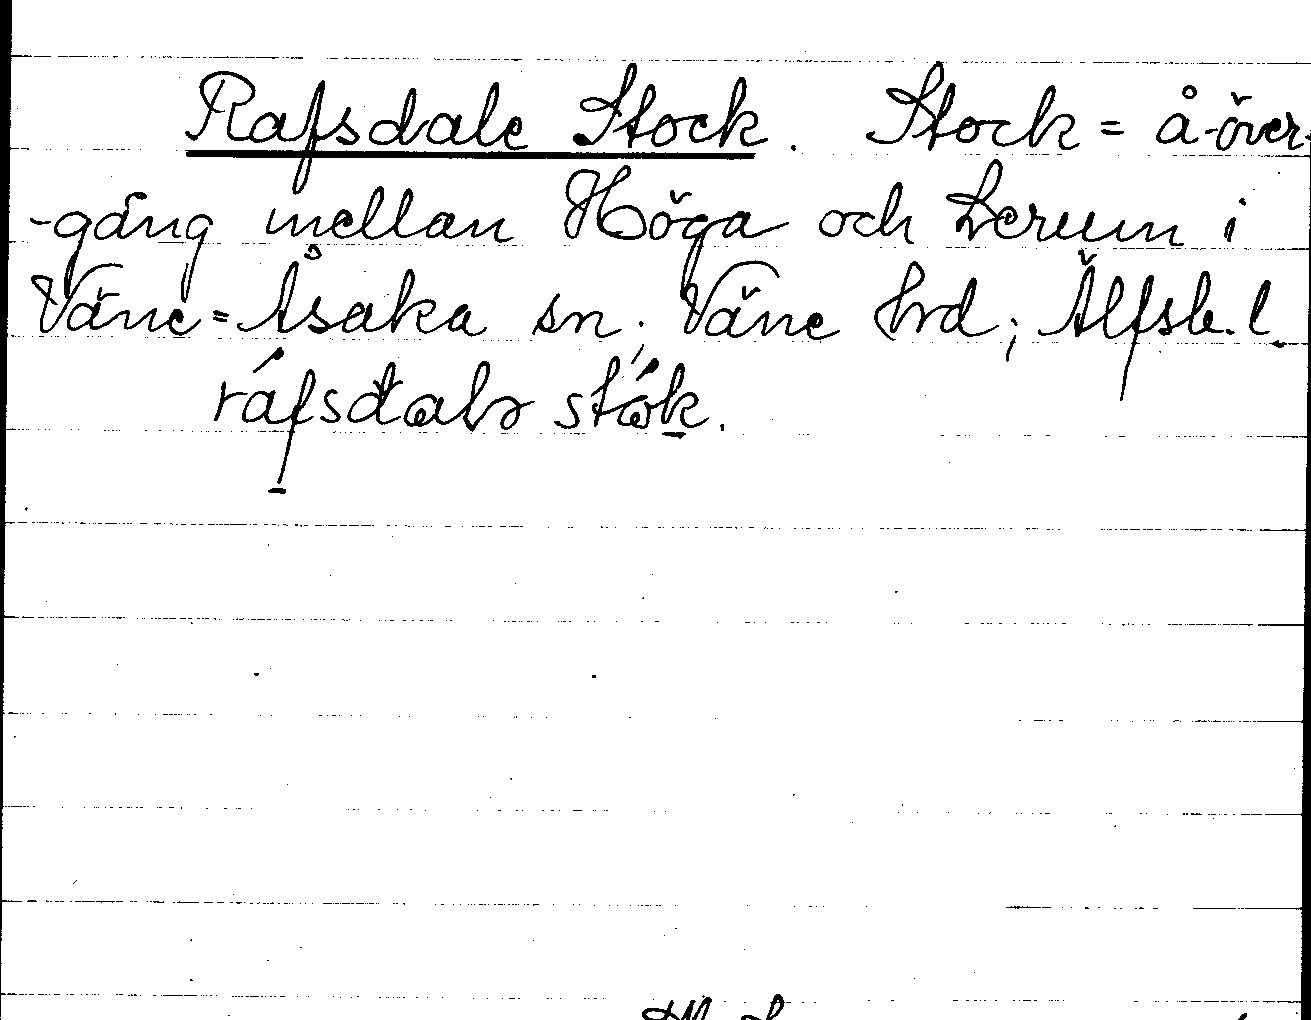 Rafsdale Stock. Stock = å-över-
-gång mellan Höga och Lerum i
Väne=Åsaka sn, Väne hrd; Älfsb. l.